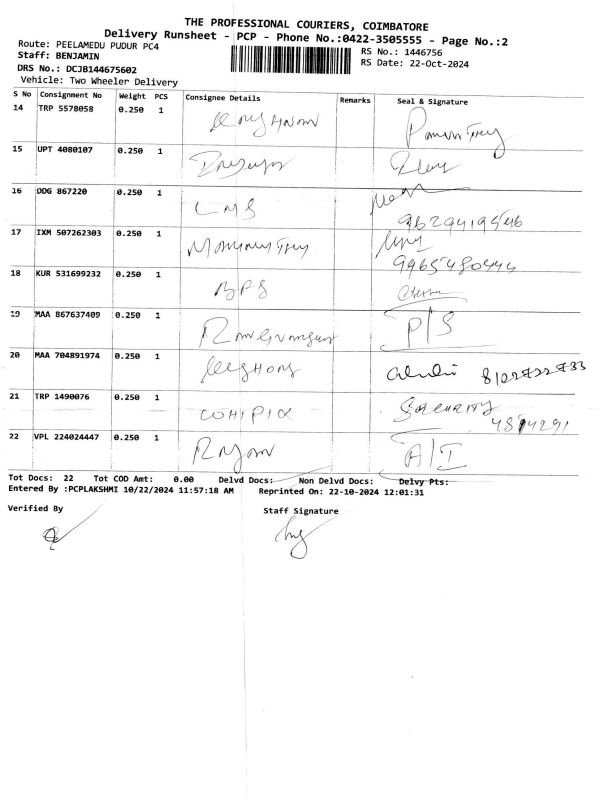 THE PROFESSIONAL COURIERS, COIMBATORE
Delivery Runsheet - PCP - Phone No.:0422-3505555 - Page No.:2
Route: PEELAMEDU PUDUR PC4
Staff: BENJAMIN
RS No.: 1446756
RS Date: 22-Oct-2024
DRS No.: DCJB144675602
Vehicle: Two Wheeler Delivery
S No Consignment No Weight PCS Consignee Details Remarks Seal & Signature
14 TRP 5578058 0.250 1
15 UPT 4080107 0.250 1
16 DDG 867220 0.250 1 LMS
9629419546
17 IXM 507262303 0.250 1
9965480444
18 KUR 531699232 0.250 1 BPS
19 MAA 867637409 0.250 1 P/S
20 MAA 704891974 0.250 1 8122722733
21 TRP 1490076 0.250 1 SECURITY
22 VPL 224024447 0.250 1 A/I
Tot Docs: 22 Tot COD Amt: 0.00 Delvd Docs: Non Delvd Docs: Delvy Pts:
Entered By :PCPLAKSHMI 10/22/2024 11:57:18 AM Reprinted On: 22-10-2024 12:01:31
Verified By Staff Signature